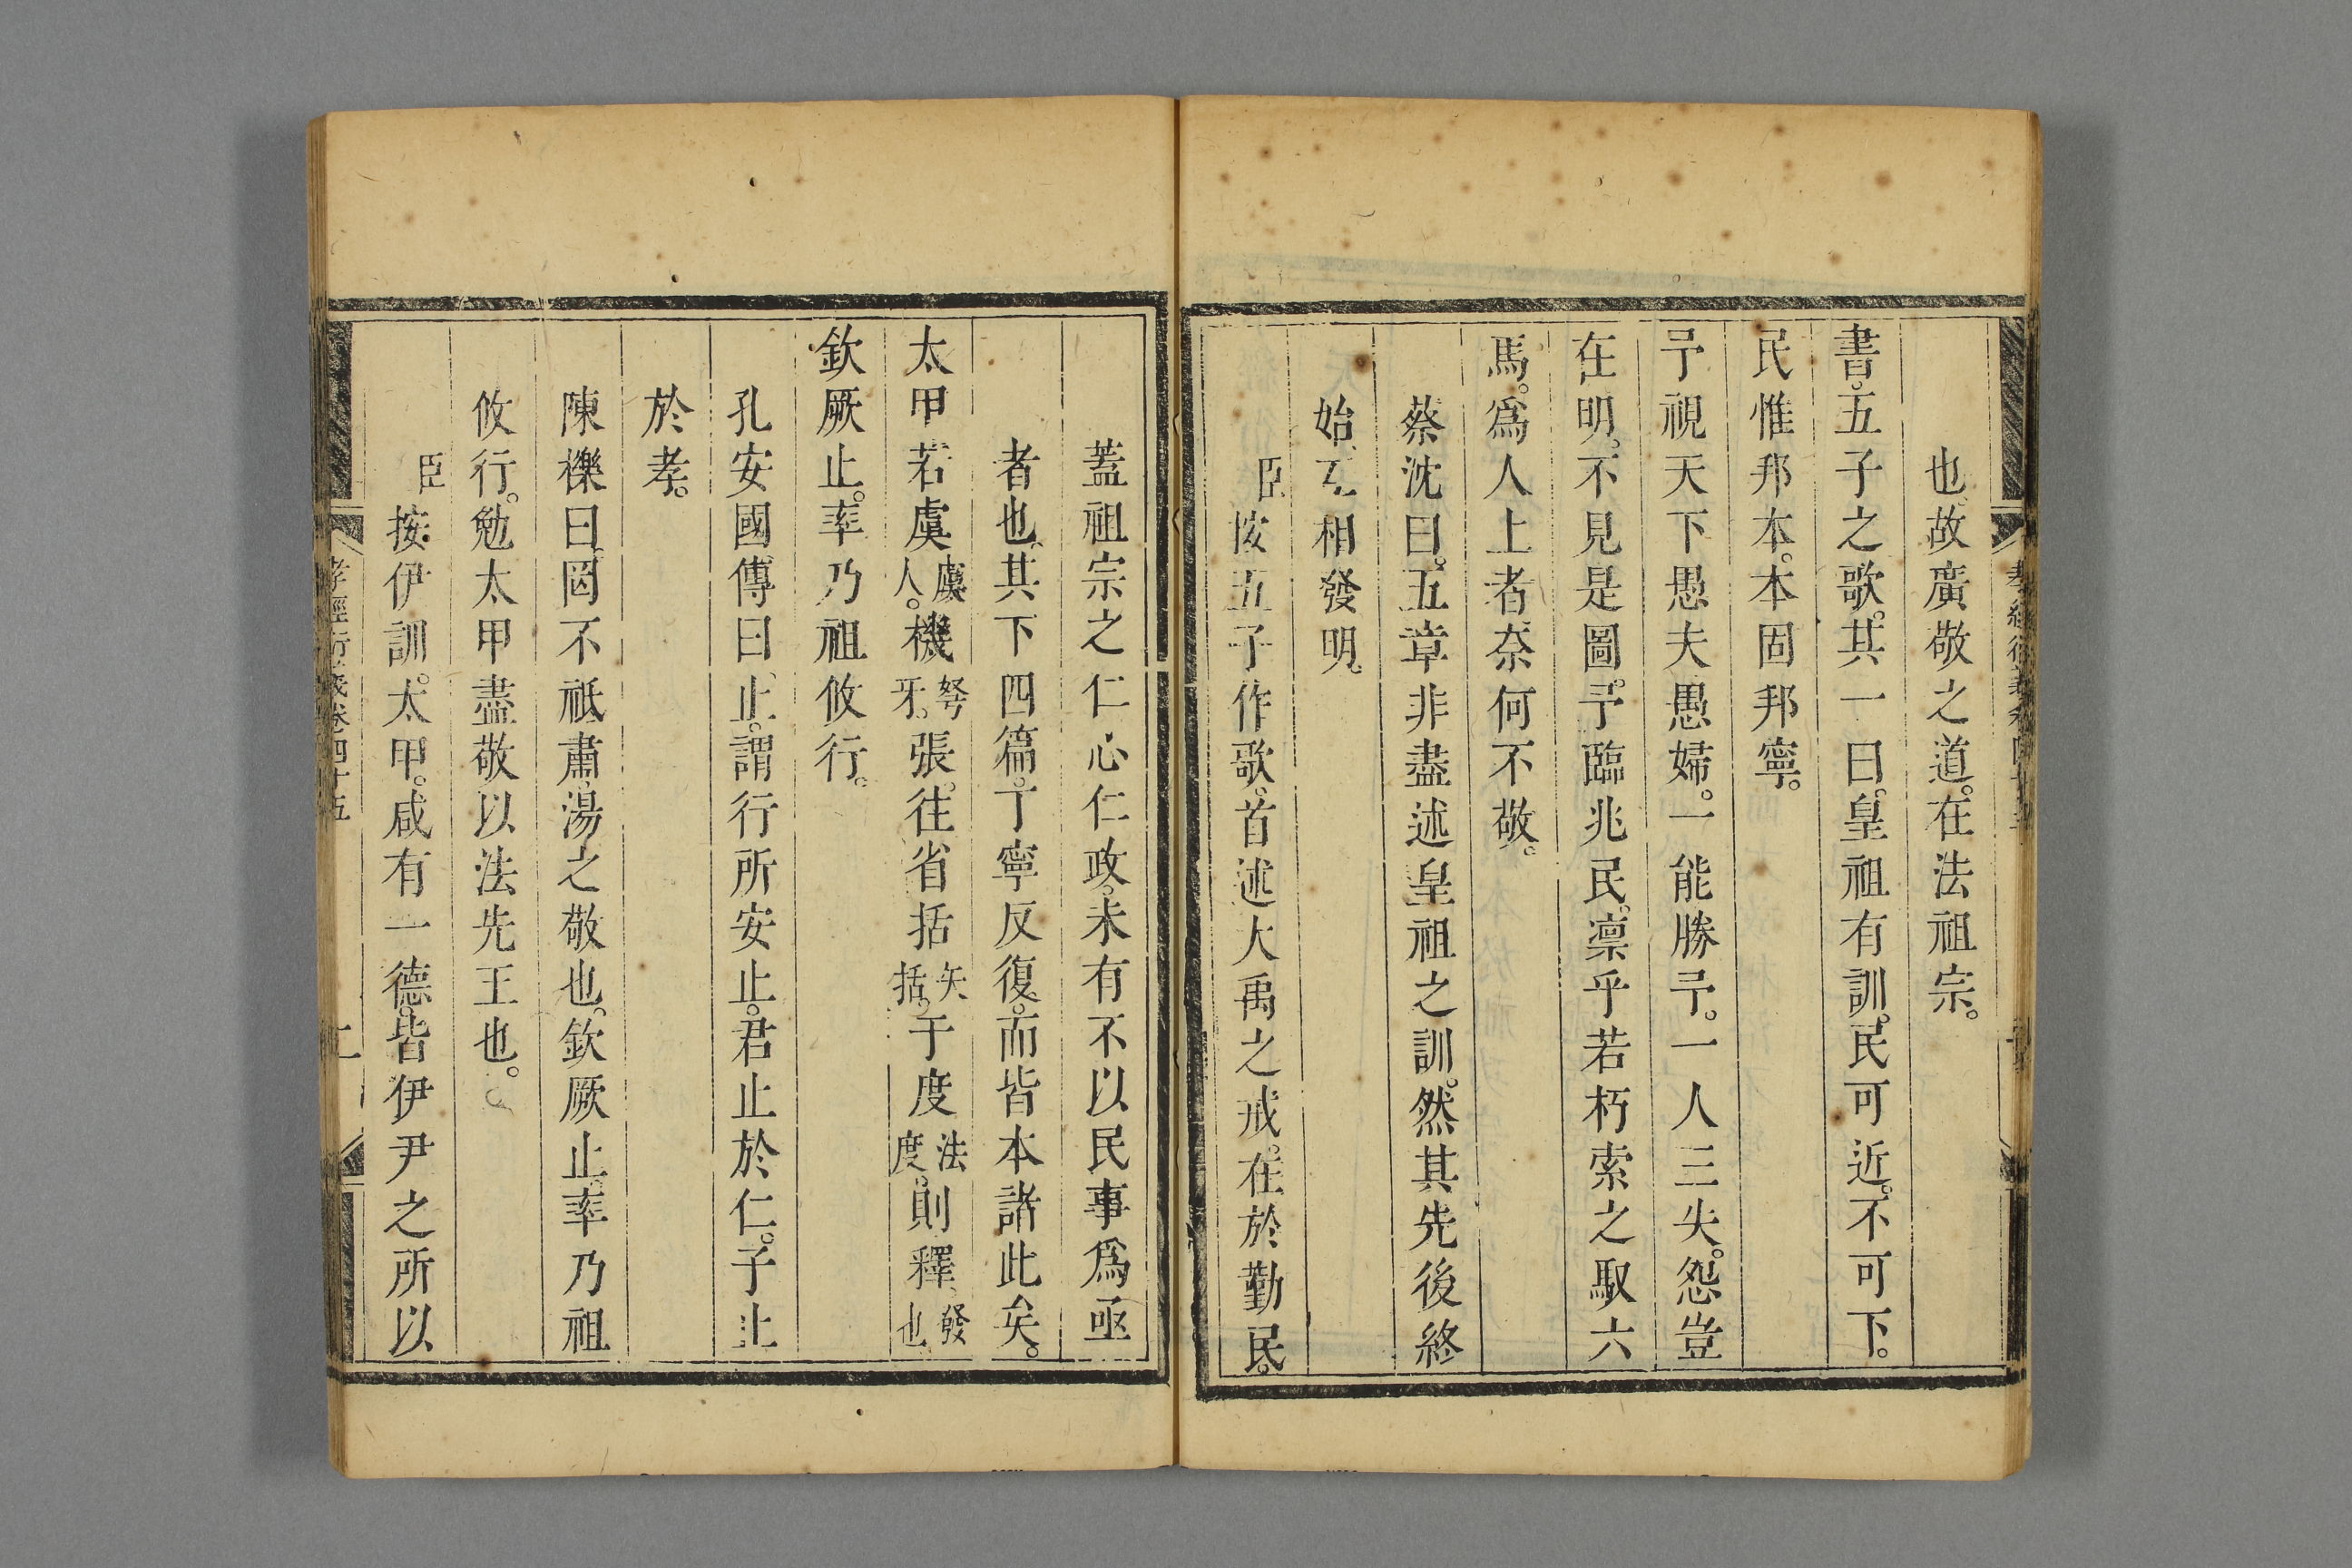 也故廣敬之道。在法祖宗。
書。五子之歌。其一曰。皇祖有訓。民可近。不可下。
民惟邦本。本固邦寧。
予視天下愚夫愚婦。一能勝予。一人三失。怨豈
在明。不見是圖。予臨兆民。凜乎若朽索之馭六
馬。爲人上者。奈何不敬。
蔡沈曰。五章非盡述皇祖之訓。然其先後終
始、互相發明。
臣按五子作歌。首述大禹之戒。在於勤民。
蓋祖宗之仁心仁政。未有不以民事爲亟
者也。其下四篇。丁寧反復。而皆本諸此矣。
太甲若虞虞人。機弩牙。張。往省括矢括。于度法度。則釋發也
欽厥止。率乃祖攸行。
孔安國傳曰、止。謂行所安止。君止於仁。子止
於孝。
陳櫟曰、罔不祗肅、湯之敬也。欽厥止。率乃祖
攸行。勉太甲盡敬以法先王也。
臣按。伊訓。太甲。咸有一德。皆伊尹之所以
孝經衍義卷四十五